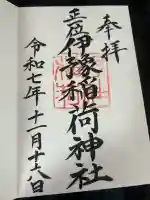 奉拝
正一位
伊豫稲荷神社
令和七年十一月十六日